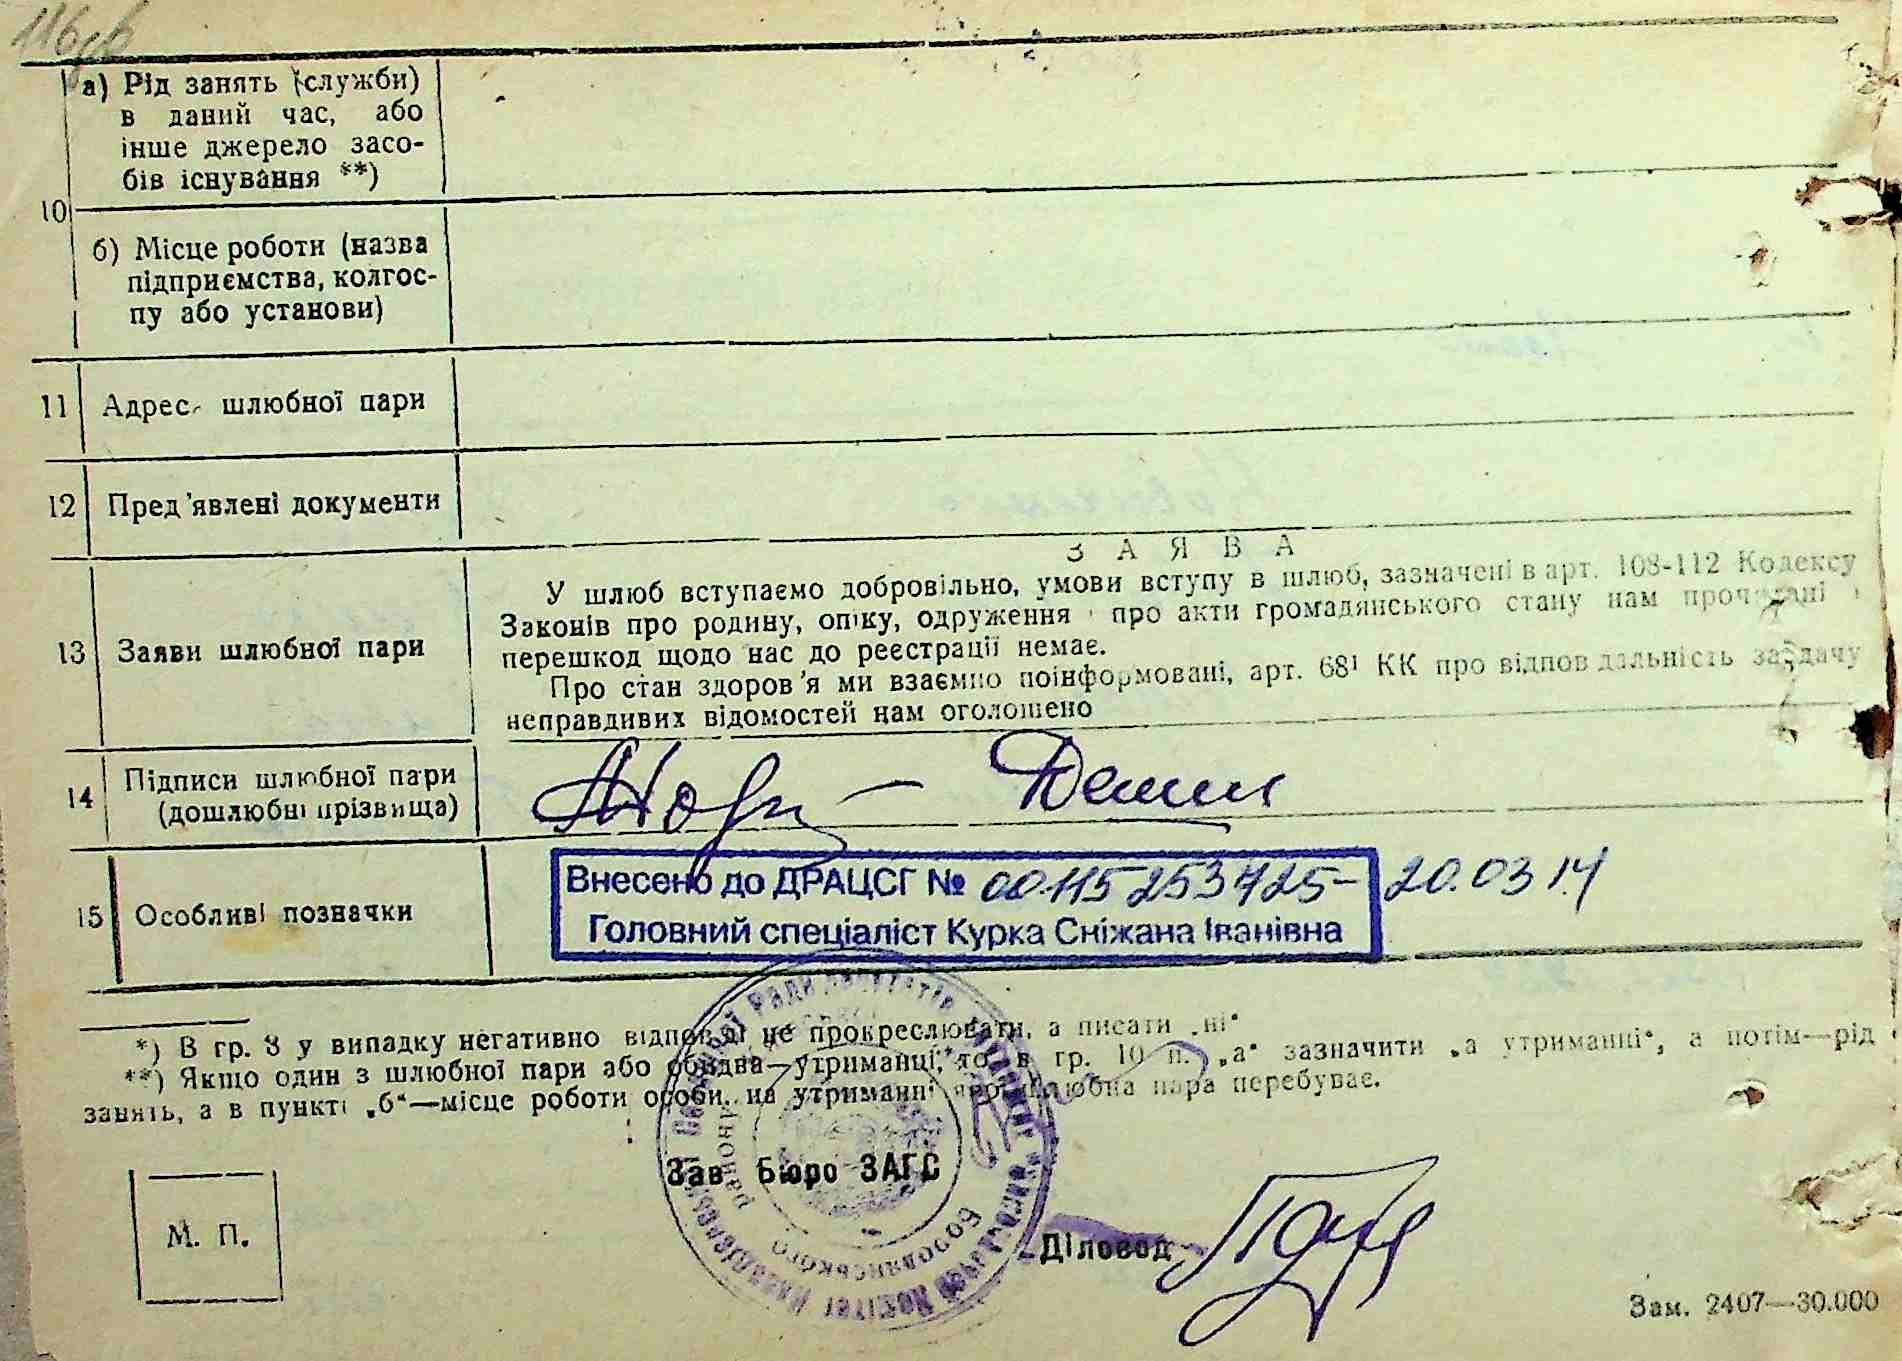 а) Рід занять (служби)
в даний час, або
інше джерело засо-
бів існування **)
10
б) Місце роботи (назва
підприємства, колгос-
пу або установи)
11 Адрес шлюбної пари
12 Пред'явлені документи
З А Я В А
У шлюб вступаємо добровільно, умови вступу в шлюб, зазначені в арт. 108-112 Кодексу
Законів про родину, опіку, одруження про акти громадянського стану нам прочитані
13 Заяви шлюбної пари
перешкод щодо нас до реєстрації немає.
Про стан здоров'я ми взаємно поінформовані, арт. 68¹ КК про відповідальність за дачу
неправдивих відомостей нам оголошено
14 Підписи шлюбної пари
(дошлюбні прізвища)
15 Особливі позначки
Внесено до ДРАЦСГ № 00115253725 20.03.14
Головний спеціаліст Курка Сніжана Іванівна
*) В гр. 8 у випадку негативно відповіді не прокреслювати, а писати „ні“
**) Якщо один з шлюбної пари або обидва—утриманці, то в гр. 10 п. „а“ зазначити „а утриманні“, а потім—рід
занять, а в пункті „б“—місце роботи особи, на утриманні якої шлюбна пара перебуває.
Зав. Бюро ЗАГС
М. П.
Діловод
Бородянського
району
Зам. 2407—30.000